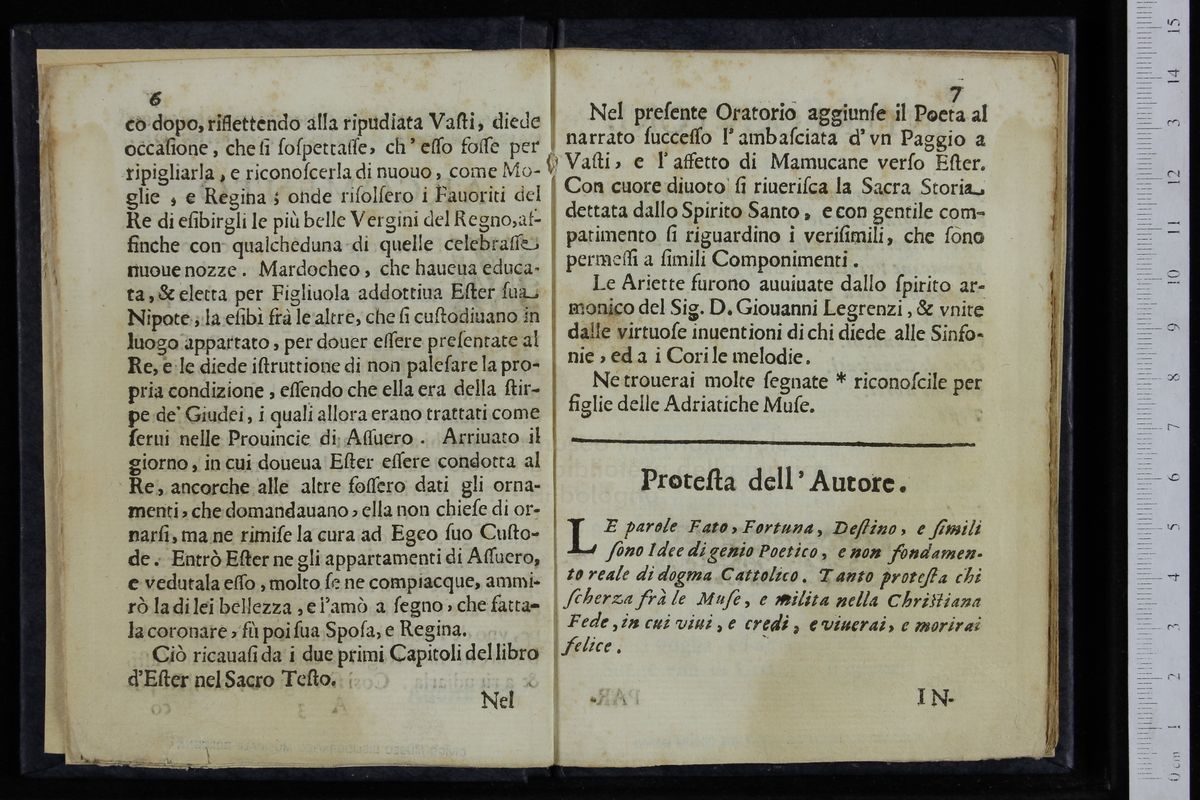 6
co dopo, riflettendo alla ripudiata Vaſti, diede
occaſione, che ſi ſoſpettaſſe, ch' eſſo foſſe per
ripigliarla, e riconoſcerla di nuouo, come Mo-
glie, e Regina; onde riſolſero i Fauoriti del
Re di eſibirgli le più belle Vergini del Regno, af-
finche con qualcheduna di quelle celebraſſe
nuoue nozze. Mardocheo, che haueua educa-
ta, & eletta per Figliuola addottiua Eſter ſua
Nipote, la eſibì frà le altre, che ſi cuſtodiuano in
luogo appartato, per douer eſſere preſentate al
Re, e le diede iſtruttione di non paleſare la pro-
pria condizione, eſſendo che ella era della ſtir-
pe de' Giudei, i quali allora erano trattati come
ſerui nelle Prouincie di Aſſuero. Arriuato il
giorno, in cui doueua Eſter eſſere condotta al
Re, ancorche alle altre foſſero dati gli orna-
menti, che domandauano, ella non chieſe di or-
narſi, ma ne rimiſe la cura ad Egeo ſuo Cuſto-
de. Entrò Eſter ne gli appartamenti di Aſſuero,
e vedutala eſſo, molto ſe ne compiacque, ammi-
rò la di lei bellezza, e l'amò a ſegno, che fatta-
la coronare, fù poi ſua Spoſa, e Regina.
Ciò ricauaſi da i due primi Capitoli del libro
d'Eſter nel Sacro Teſto.
Nel
7
Nel preſente Oratorio aggiunſe il Poeta al
narrato ſucceſſo l'ambaſciata d'vn Paggio a
Vaſti, e l'affetto di Mamucane verſo Eſter.
Con cuore diuoto ſi riueriſca la Sacra Storia
dettata dallo Spirito Santo, e con gentile com-
patimento ſi riguardino i veriſimili, che ſono
permeſſi a ſimili Componimenti.
Le Ariette furono auuiuate dallo ſpirito ar-
monico del Sig. D. Giouanni Legrenzi, & vnite
dalle virtuoſe inuentioni di chi diede alle Sinfo-
nie, ed a i Cori le melodie.
Ne trouerai molte ſegnate * riconoſcile per
figlie delle Adriatiche Muſe.
Proteſta dell'Autore.
LE parole Fato, Fortuna, Deſtino, e ſimili
ſono Idee di genio Poetico, e non fondamen-
to reale di dogma Cattolico. Tanto proteſta chi
ſcherza frà le Muſe, e milita nella Chriſtiana
Fede, in cui viui, e credi, e viuerai, e morirai
felice.
IN-